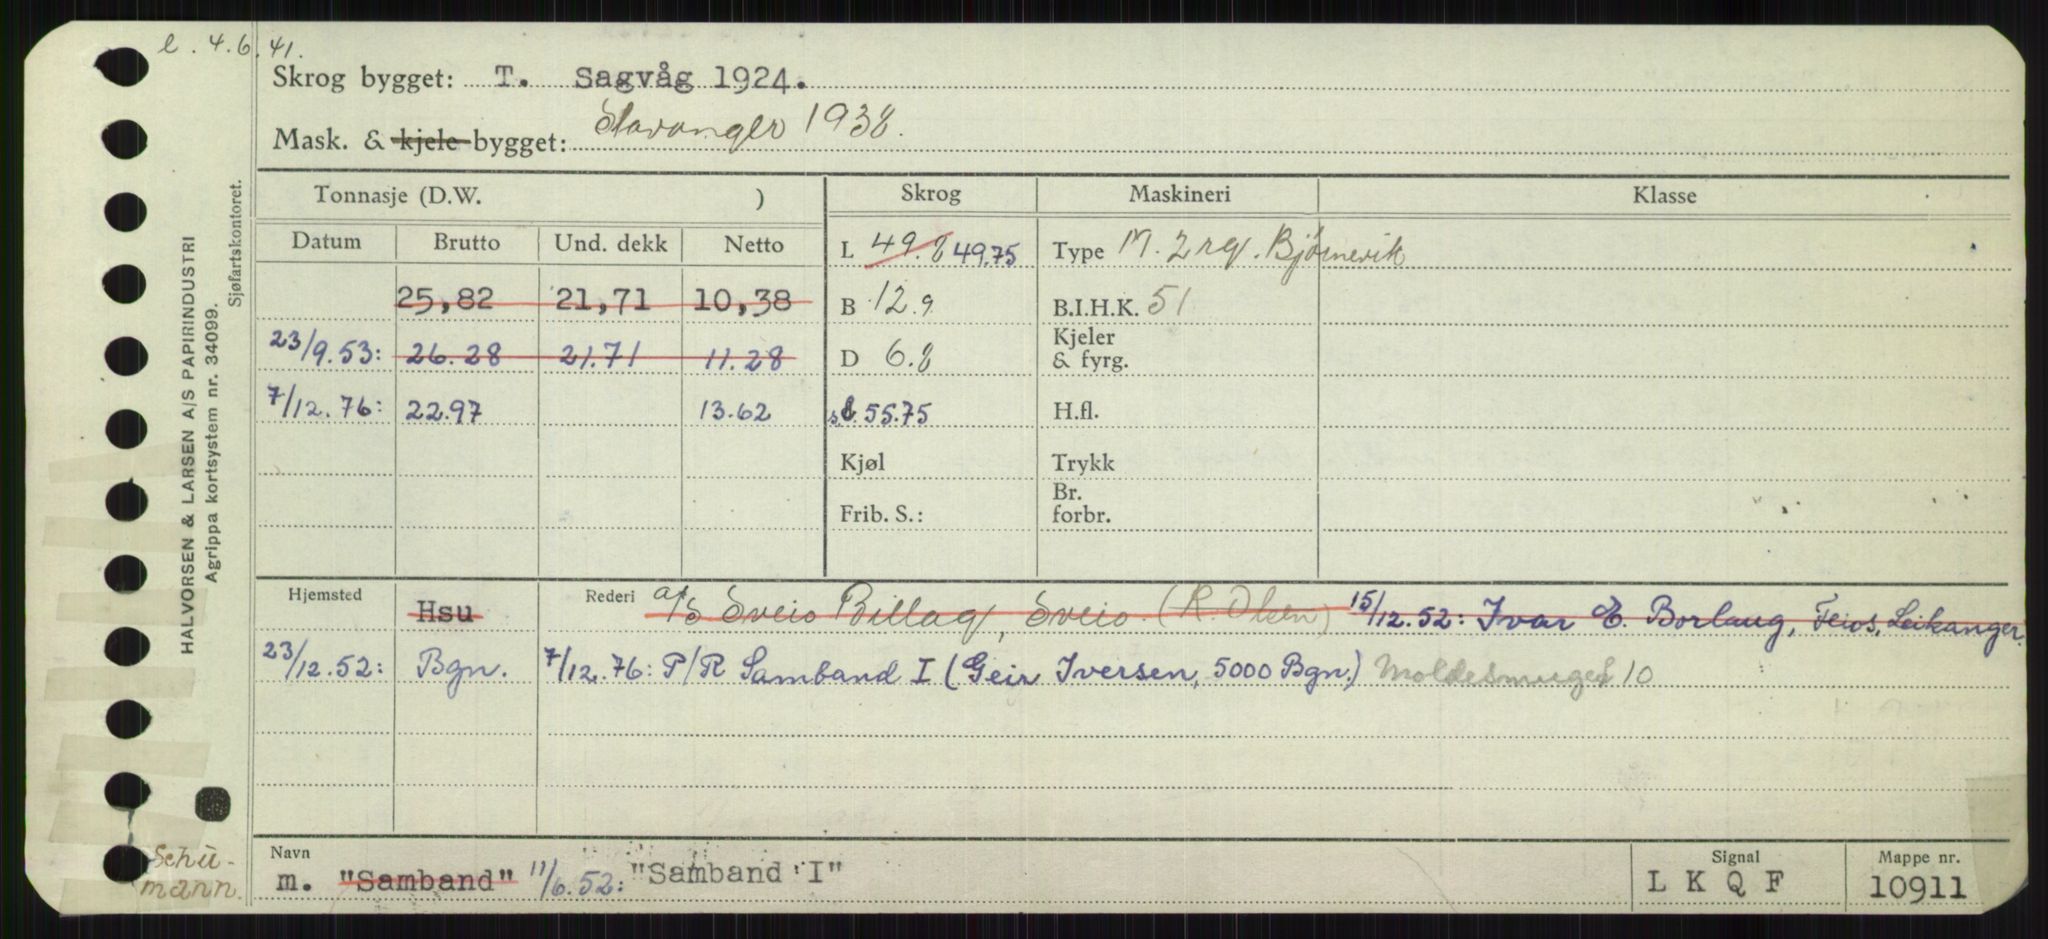 e. 4.6.41.
Skrog bygget: T. Sagvåg 1924.
Mask. & kjele bygget: Stavanger 1938.
Tonnasje (D.W. ) Skrog Maskineri Klasse
Datum Brutto Und. dekk Netto L 49.8 49.75 Type M. 2 rg. Bjørnevik
25,82 21,71 10,38 B 12.9 B.I.H.K. 51
Kjeler
23/9.53: 26.28 21.71 11.28 D 6.8 & fyrg.
7/12.76: 22.97 13.62 s.l. 55.75 H.fl.
Kjøl Trykk
Br.
Frib. S.: forbr.
Hjemsted Hsu Rederi a/s Sveio Billag, Sveio. (R. Olsen) 15/12.52: Ivar E. Borlaug, Feios, Leikanger.
23/12.52: Bgn. 7/12.76: P/R Samband I (Geir Iversen, 5000 Bgn.) 10
Navn Signal Mappe nr.
m. "Samband" 11/6.52: "Samband I" L K Q F 10911
Schu-
mann.
HALVORSEN & LARSEN A/S PAPIRINDUSTRI
Agrippa kortsystem nr. 34099.
Sjøfartskontoret.